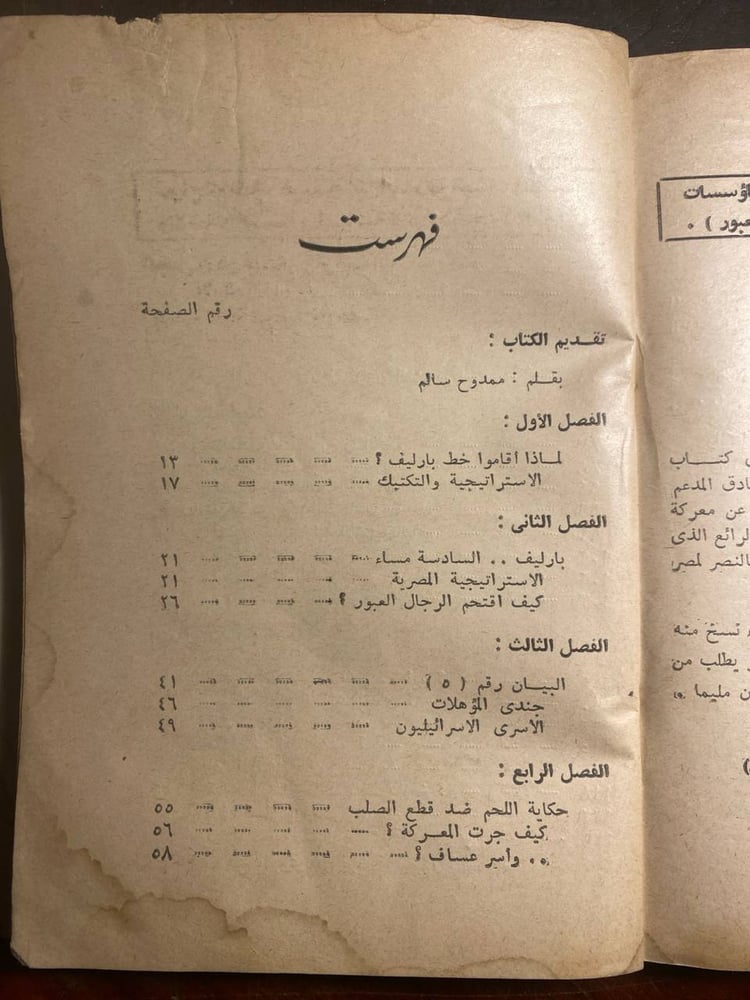 فهرست
رقم الصفحة
تقديم الكتاب :
بقلم : ممدوح سالم
الفصل الأول :
لماذا أقاموا خط بارليف ؟ ١٣
الاستراتيجية والتكتيك ١٧
الفصل الثانى :
بارليف .. السادسة مساء ٢١
الاستراتيجية المصرية ٢١
كيف اقتحم الرجال العبور ؟ ٢٦
الفصل الثالث :
البيان رقم ( ٥ ) ٤١
جندى المؤهلات ٤٦
الأسرى الاسرائيليون ٤٩
الفصل الرابع :
حكاية اللحم ضد قطع الصلب ٥٥
كيف جرت المعركة ؟ ٥٦
.. وأسر عساف ؟ ٥٨
عبور ) .
كتاب
المدعم
عن معركة
الذى
لمصر
تسخ منه
يطلب من
مليما